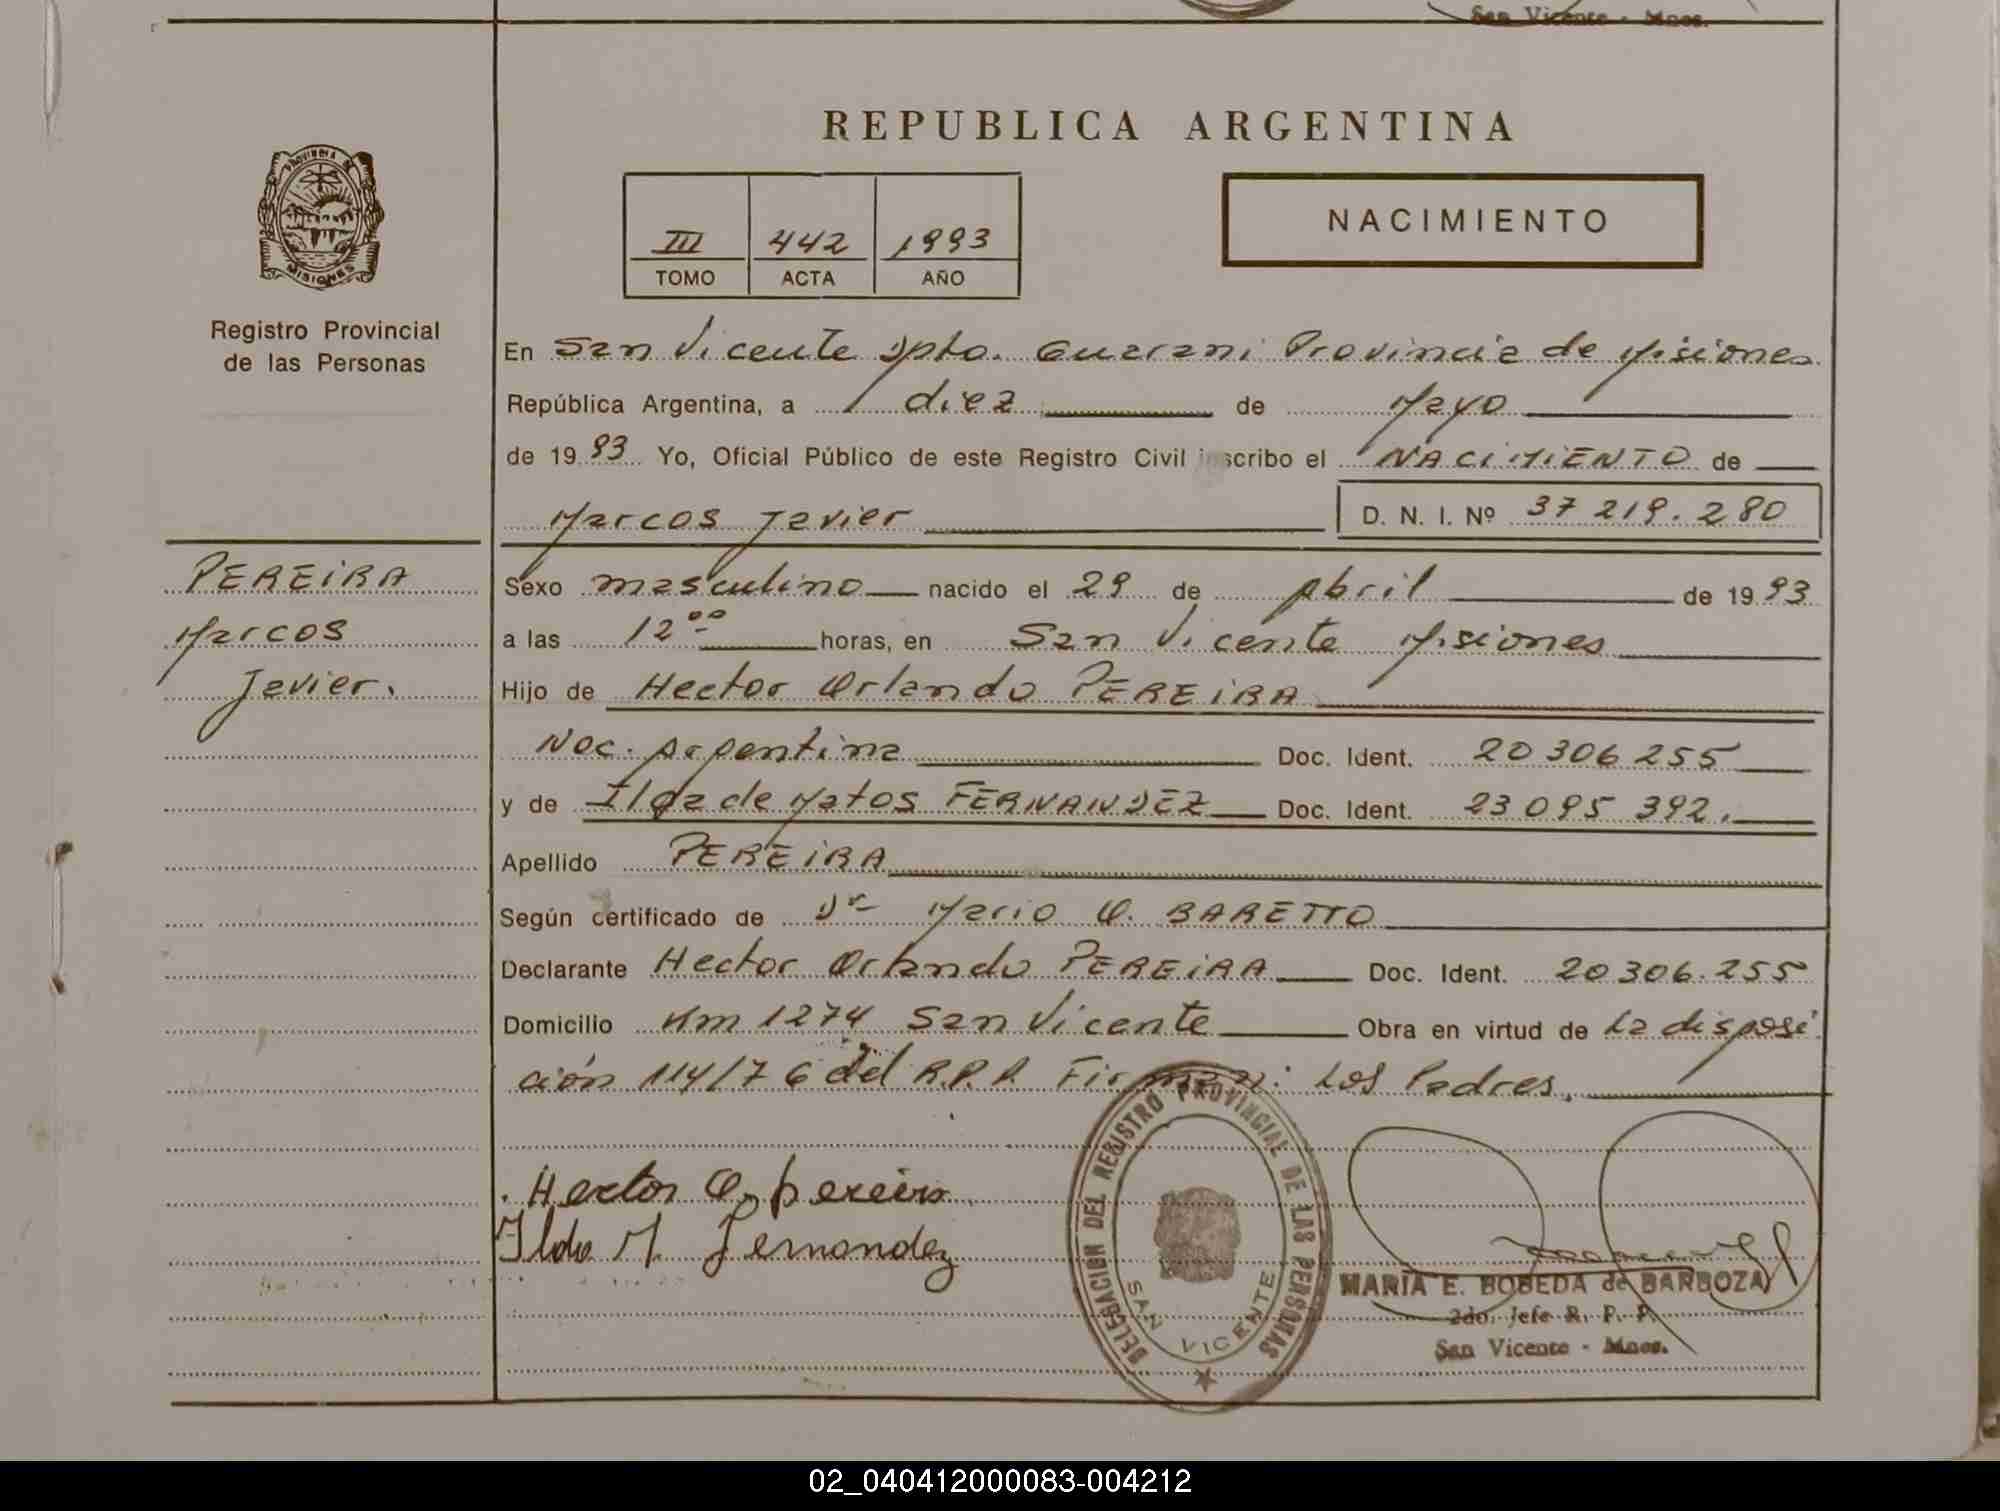 San Vicente - Mnes.
REPUBLICA ARGENTINA
PROVINCIA DE
MISIONES
Registro Provincial
de las Personas
III 442 1993
TOMO ACTA AÑO
NACIMIENTO
En San Vicente Dpto. Guarani Provincia de Misiones
República Argentina, a diez de Mayo
de 1993 Yo, Oficial Público de este Registro Civil inscribo el NACIMIENTO de
Marcos Javier D. N. I. Nº 37 219.280
PEREIRA
Marcos
Javier.
Sexo masculino nacido el 29 de Abril de 1993
a las 12 00 horas, en San Vicente Misiones
Hijo de Hector Orlando PEREIRA
Nac. Argentina Doc. Ident. 20 306 255
y de Ilda de Matos FERNANDEZ Doc. Ident. 23 095 392.
Apellido PEREIRA
Según certificado de Dr Mario O. BARETTO
Declarante Hector Orlando PEREIRA Doc. Ident. 20306.255
Domicilio Km 1274 San Vicente Obra en virtud de La disposi
ción 114/76 del R.P.P. Firman: Los Padres.
Hector O. pereira
Ilda M. Fernandez
DELEGACION DEL REGISTRO PROVINCIAL DE LAS PERSONAS
SAN VICENTE
MARIA E. BOBEDA de BARBOZA
2do. Jefe R. P. P.
San Vicente - Mnes.
02_040412000083-004212